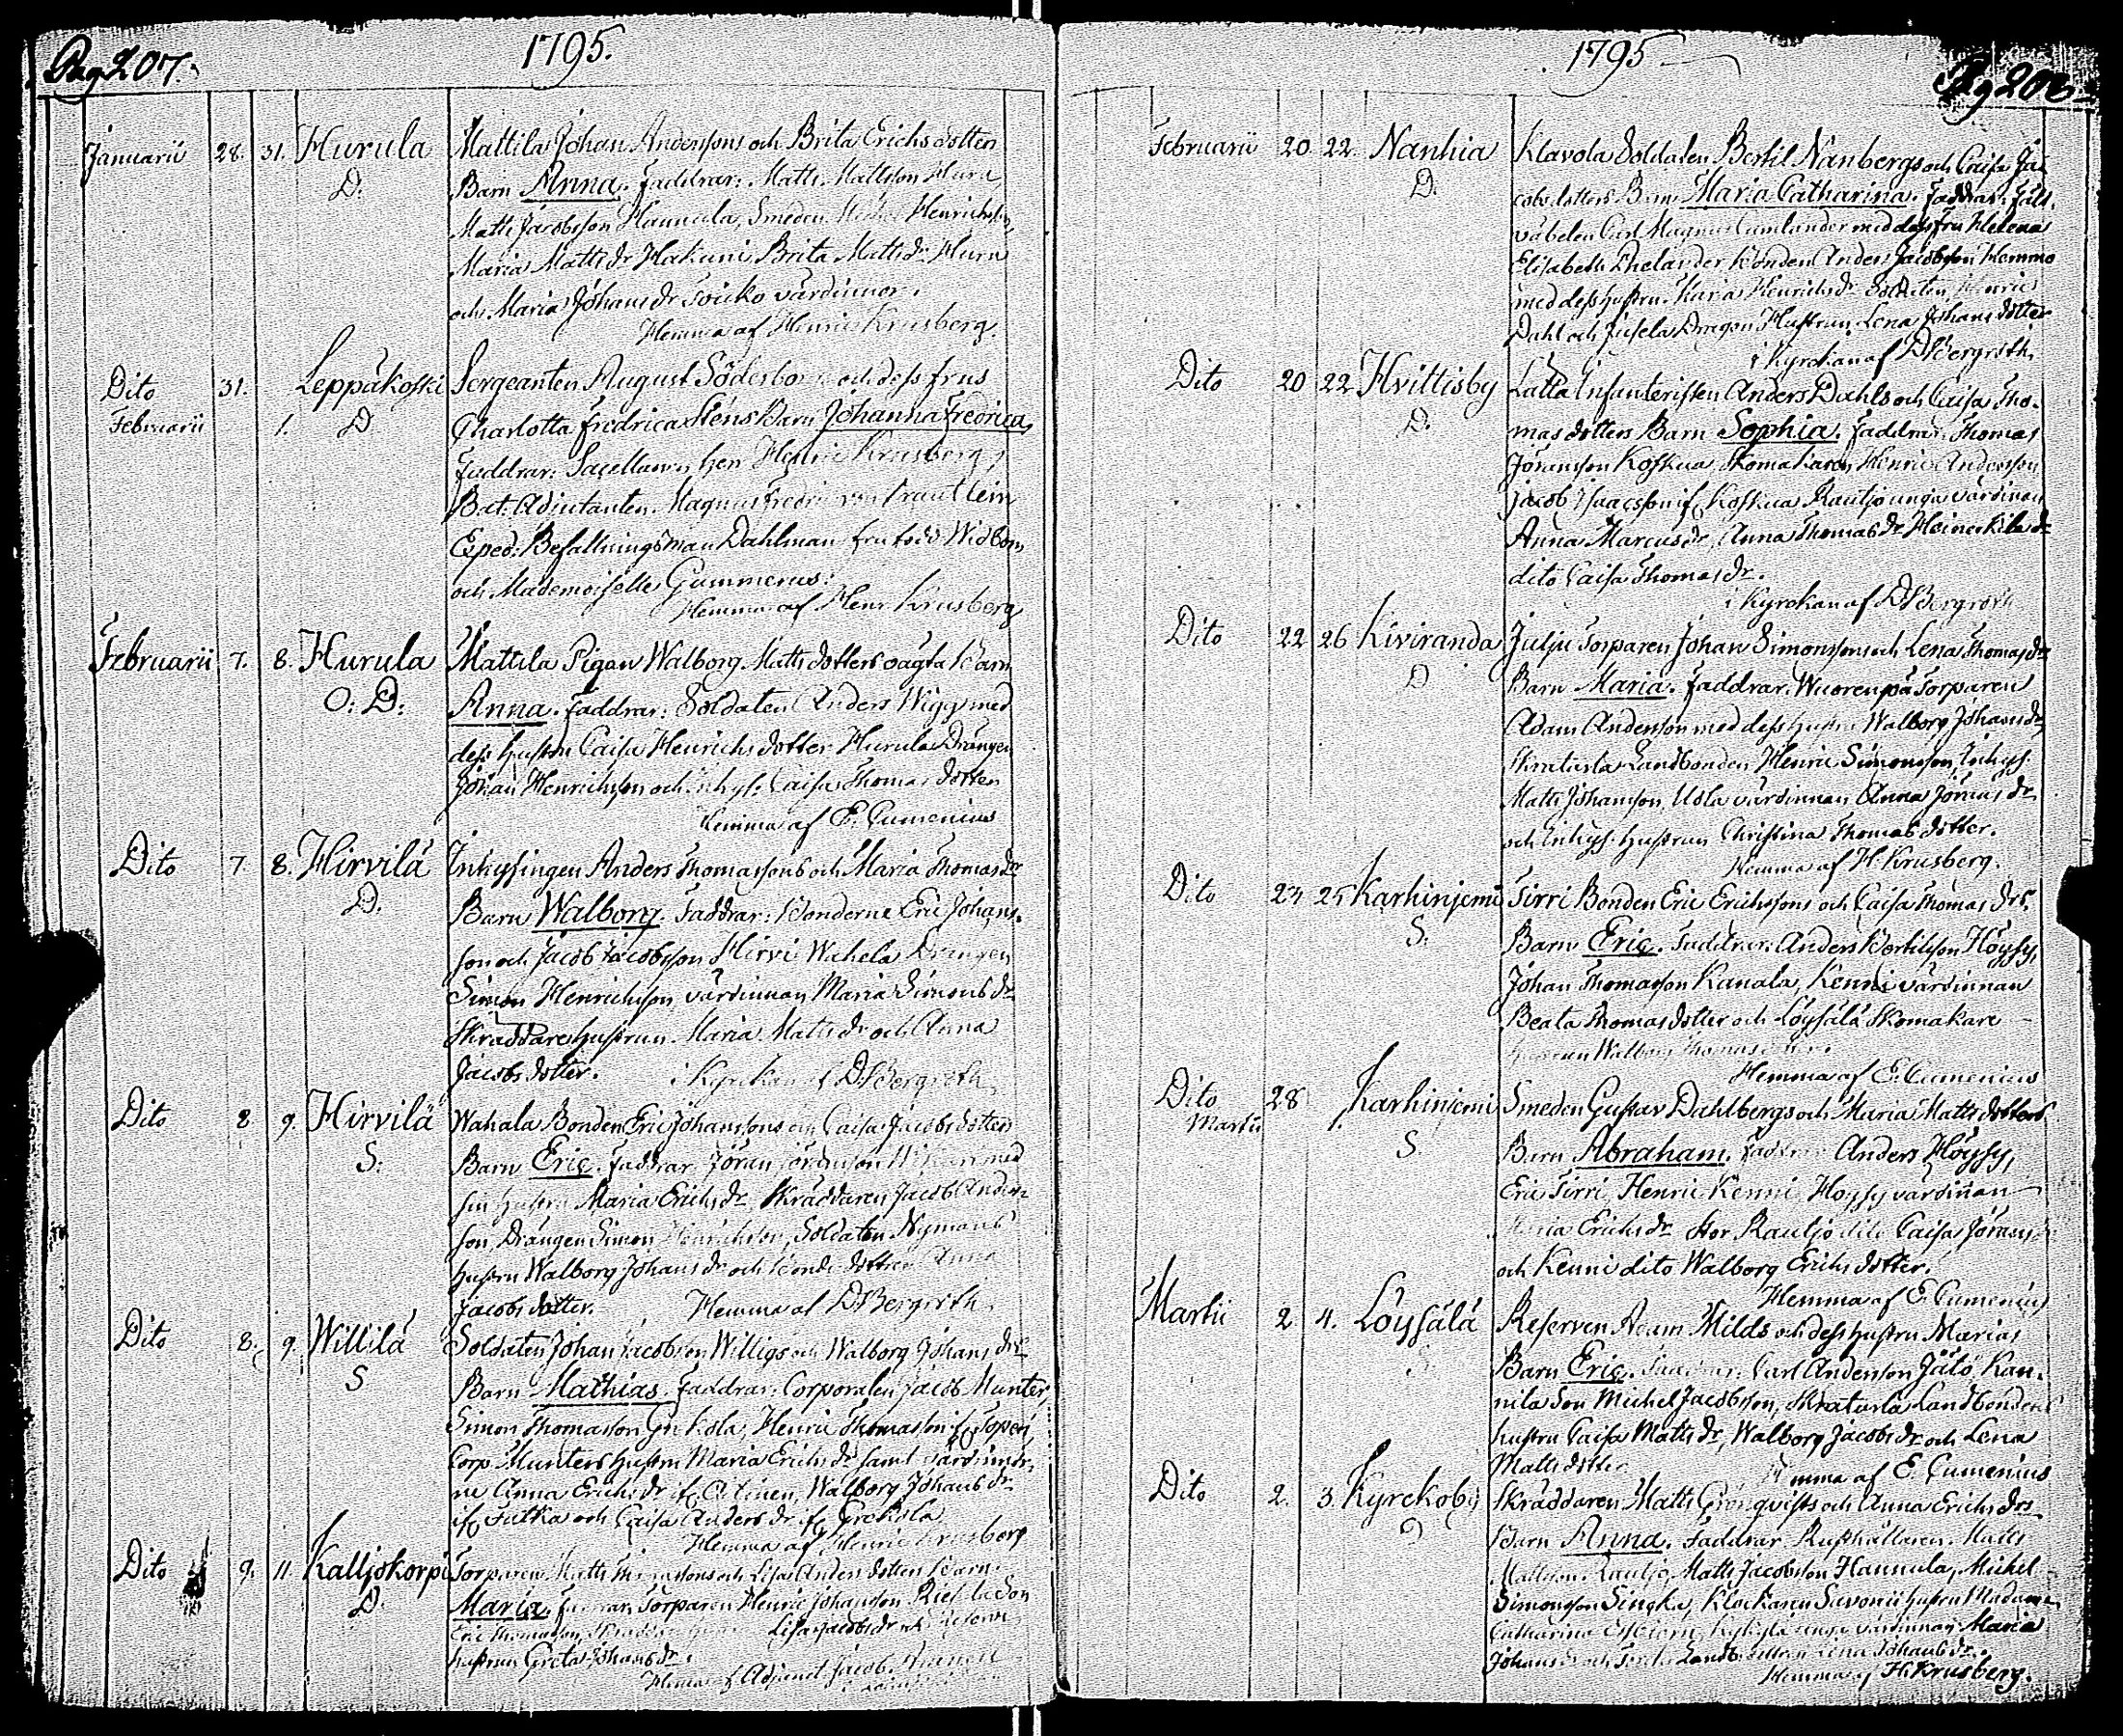 Pag 207.
1795.
Januarii 28. 31. Hurula Mattila Johan Anderssons och Brita Erichsdotters
D. Barn Anna. Faddrar: Matts Mattsson Huru,
Matts Jacobsson Hannula, Smeden Henrichsson,
Maria Mattsdr Hakuni, Brita Mattsdr Huru
och Maria Johansdr Soicko värdinnor.
Hemma af Henric Krusberg.
Dito 31. Leppäkoski Sergeanten August Söderbo och dess frus
Februarii 1. D Charlotta Fredrica Sténs Barn Johanna Fredrica,
Faddrar: Sacellanen Herr Henric Krusberg,
Bat: Adjutanten Magnus Fredric von
Exped: Befallningsman Dahlman fru född Widbom
och Mademoiselle Gummerus.
Hemma af Henr Krusberg
Februarii 7. 8. Hurula Mattila Pigan Walborg Mattsdotters oägta Barn
O: D: Anna. Faddrar: Soldaten Anders Wiggs med
dess hustru Caisa Henrichsdotter Hurula Drängen
Johan Henrichsson och Inhys: Caisa Thomasdotter
Hemma af E: Cumenius
Dito 7. 8. Hirvilä Inhysingen Anders Thomassons och Maria Thomasdrs
D. Barn Walborg. Faddrar: Bönderne Eric Johans-
son och Jacob Jacobsson Hirvi Wahela Drängen
Simon Henrichsson värdinnan Maria Simonsdr
Skräddarehustrun Maria Mattsdr och Anna
Jacobsdotter. i Kyrckan af D Bergroth
Dito 8 9. Hirvilä Wahala Bonden Eric Johanssons och Caisa Jacobsdotters
S: Barn Eric. Faddrar Jöran Jöransson med
sin hustru Maria Erichsdr Skräddaren Jacob Anders-
son, Drängen Simon Henrichsson, Soldaten Nymans
hustru Walborg Johansdr och Bondedottren Anna
Jacobsdotter. Hemma af D Bergroth
Dito 8. 9. Willilä Soldaten Johan Jacobsson Willigs och Walborg Johansdrs
S Barn Mathias. Faddrar: Corporalen Jacob Munter,
Simon Thomasson Henric Thomasson if:
Corp Munters hustru Maria Erichsdr samt värdinnor-
ne Anna Erichsdr if: Walborg Johansdr
if: Jutka och Caisa Andersdr if:
Hemma af Henric Krusberg
Dito 9. 11. Kalljokorpi Torparen Matts och Lisa Andersdotters Barn
D. Maria. Faddrar Torparen Henric Johansson Son
Eric Thomasson, Lisa Jacobsdr och
hustrun Greta Johansdr.
Hemma af Adjunct Jacob
1795
Pag 208
Februarii 20 22. Nanhia Klavola Soldaten Bertil Nanbergs och Caisa Ja-
D. cobsdotters Barn Maria Catharina. Faddrar: Fält-
väbelen Carl Magnus med dess fru Helena
Elisabeth Thelander Bonden Anders Jacobsson Hemmo
med dess hustru Karin Henrichsdr Soldaten Henric
Dahl och Jusela Dragon Hustrun Lena Johansdotter
i Kyrckan af D Bergroth.
Dito 20 22 Hvittisby Latta Infanteristen Anders Dahls och Caisa Tho-
D. masdotters Barn Sophia. Faddrar: Thomas
Jöransson Koskua, Skomakaren Henric Andersson
Jacob Isaacsson if: Koskua Rautjo unga värdinnan
Anna Marcusdr, Anna Thomasdr
dito Caisa Thomasdr.
i Kyrckan af D Bergroth
Dito 22 26 Kiviranda Julju Torparen Johan Simonssons och Lena Thomasdrs
D Barn Maria. Faddrar: Wuorenpä Torparen
Adam Andersson med dess hustru Walborg Johansdr,
Skraturla Landbonden Henric Simonsson, Inhys:
Matts Johansson, Usla värdinnan Anna Jöransdr
och Inhys: hustrun Christina Thomasdotter.
Hemma af H. Krusberg.
Dito 24 25 Karhinjemi Tirri Bonden Eric Erichssons och Caisa Thomasdrs.
S. Barn Eric. Faddrar: Anders Bertilsson Höyssy,
Johan Thomasson Kanala, Kenni värdinnan
Beata Thomasdotter och Löysälä Skomakare
hustrun Walborg Thomasdotter.
Hemma af E. Cumenius
Dito 28 Karhinjemi Smeden Gustav Dahlbergs och Maria Mattsdotters
Martii 1. S Barn Abraham. Faddrar Anders Höyssy,
Eric Tirri, Henric Kenni Höyssy värdinnan
Maria Erichsdr Stor Rautjo dito Caisa Jöransdr
och Kenni dito Walborg Erichsdotter.
Hemma af E. Cumenius
Martii 2 4. Löysälä Reserven Adam Milds och dess hustru Marias
S Barn Eric. Faddrar: Carl Andersson Jätö Kan-
nila Son Michel Jacobsson, Skraturla Landbondens
hustru Caisa Mattsdr, Walborg Jacobsdr och Lena
Mattsdotter Hemma af E. Cumenius
Dito 2. 3. Kyrckoby Skräddaren Matts Grönqvists och Anna Erichsdrs
D Barn Anna. Faddrar Rusthållaren Matts
Mattsson Rautjo, Matts Jacobsson Hannula, Michel
Simonsson Singka, Klockaren Savonii hustru Madame
Catharina unga värdinnan Maria
Johansdr och Lena Johansdr.
Hemma af H. Krusberg.